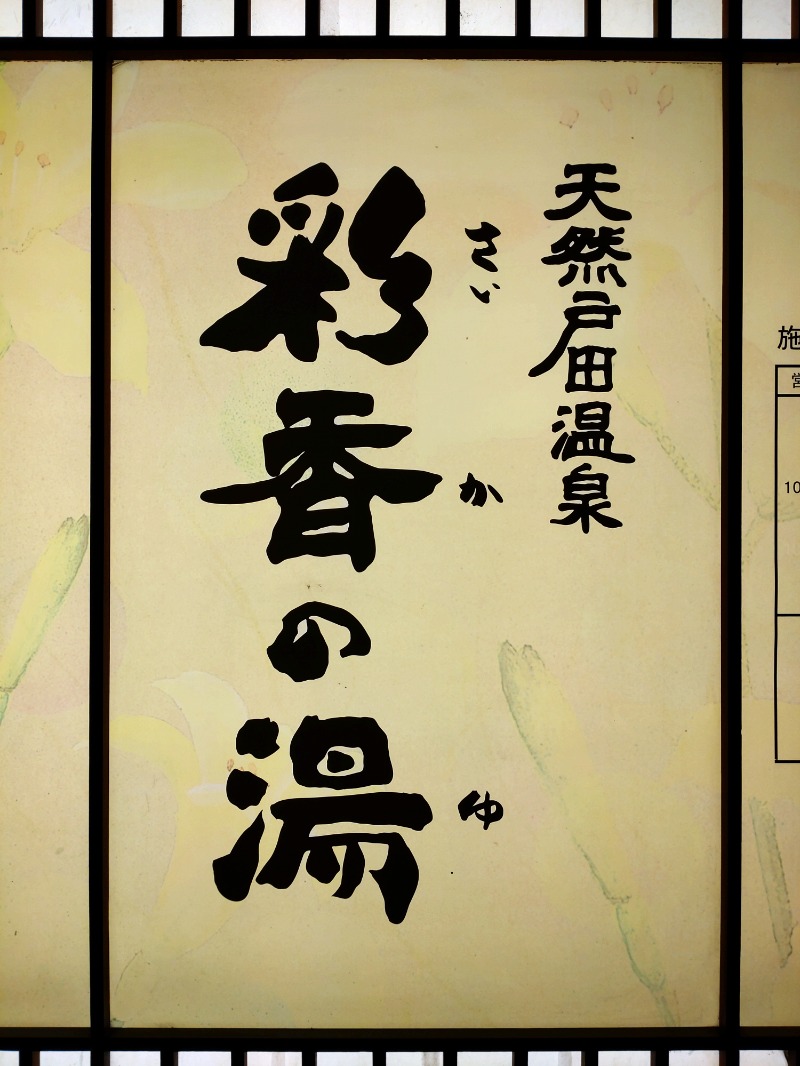 天然戸田温泉
さい か ゆ
彩香の湯
施
営
10